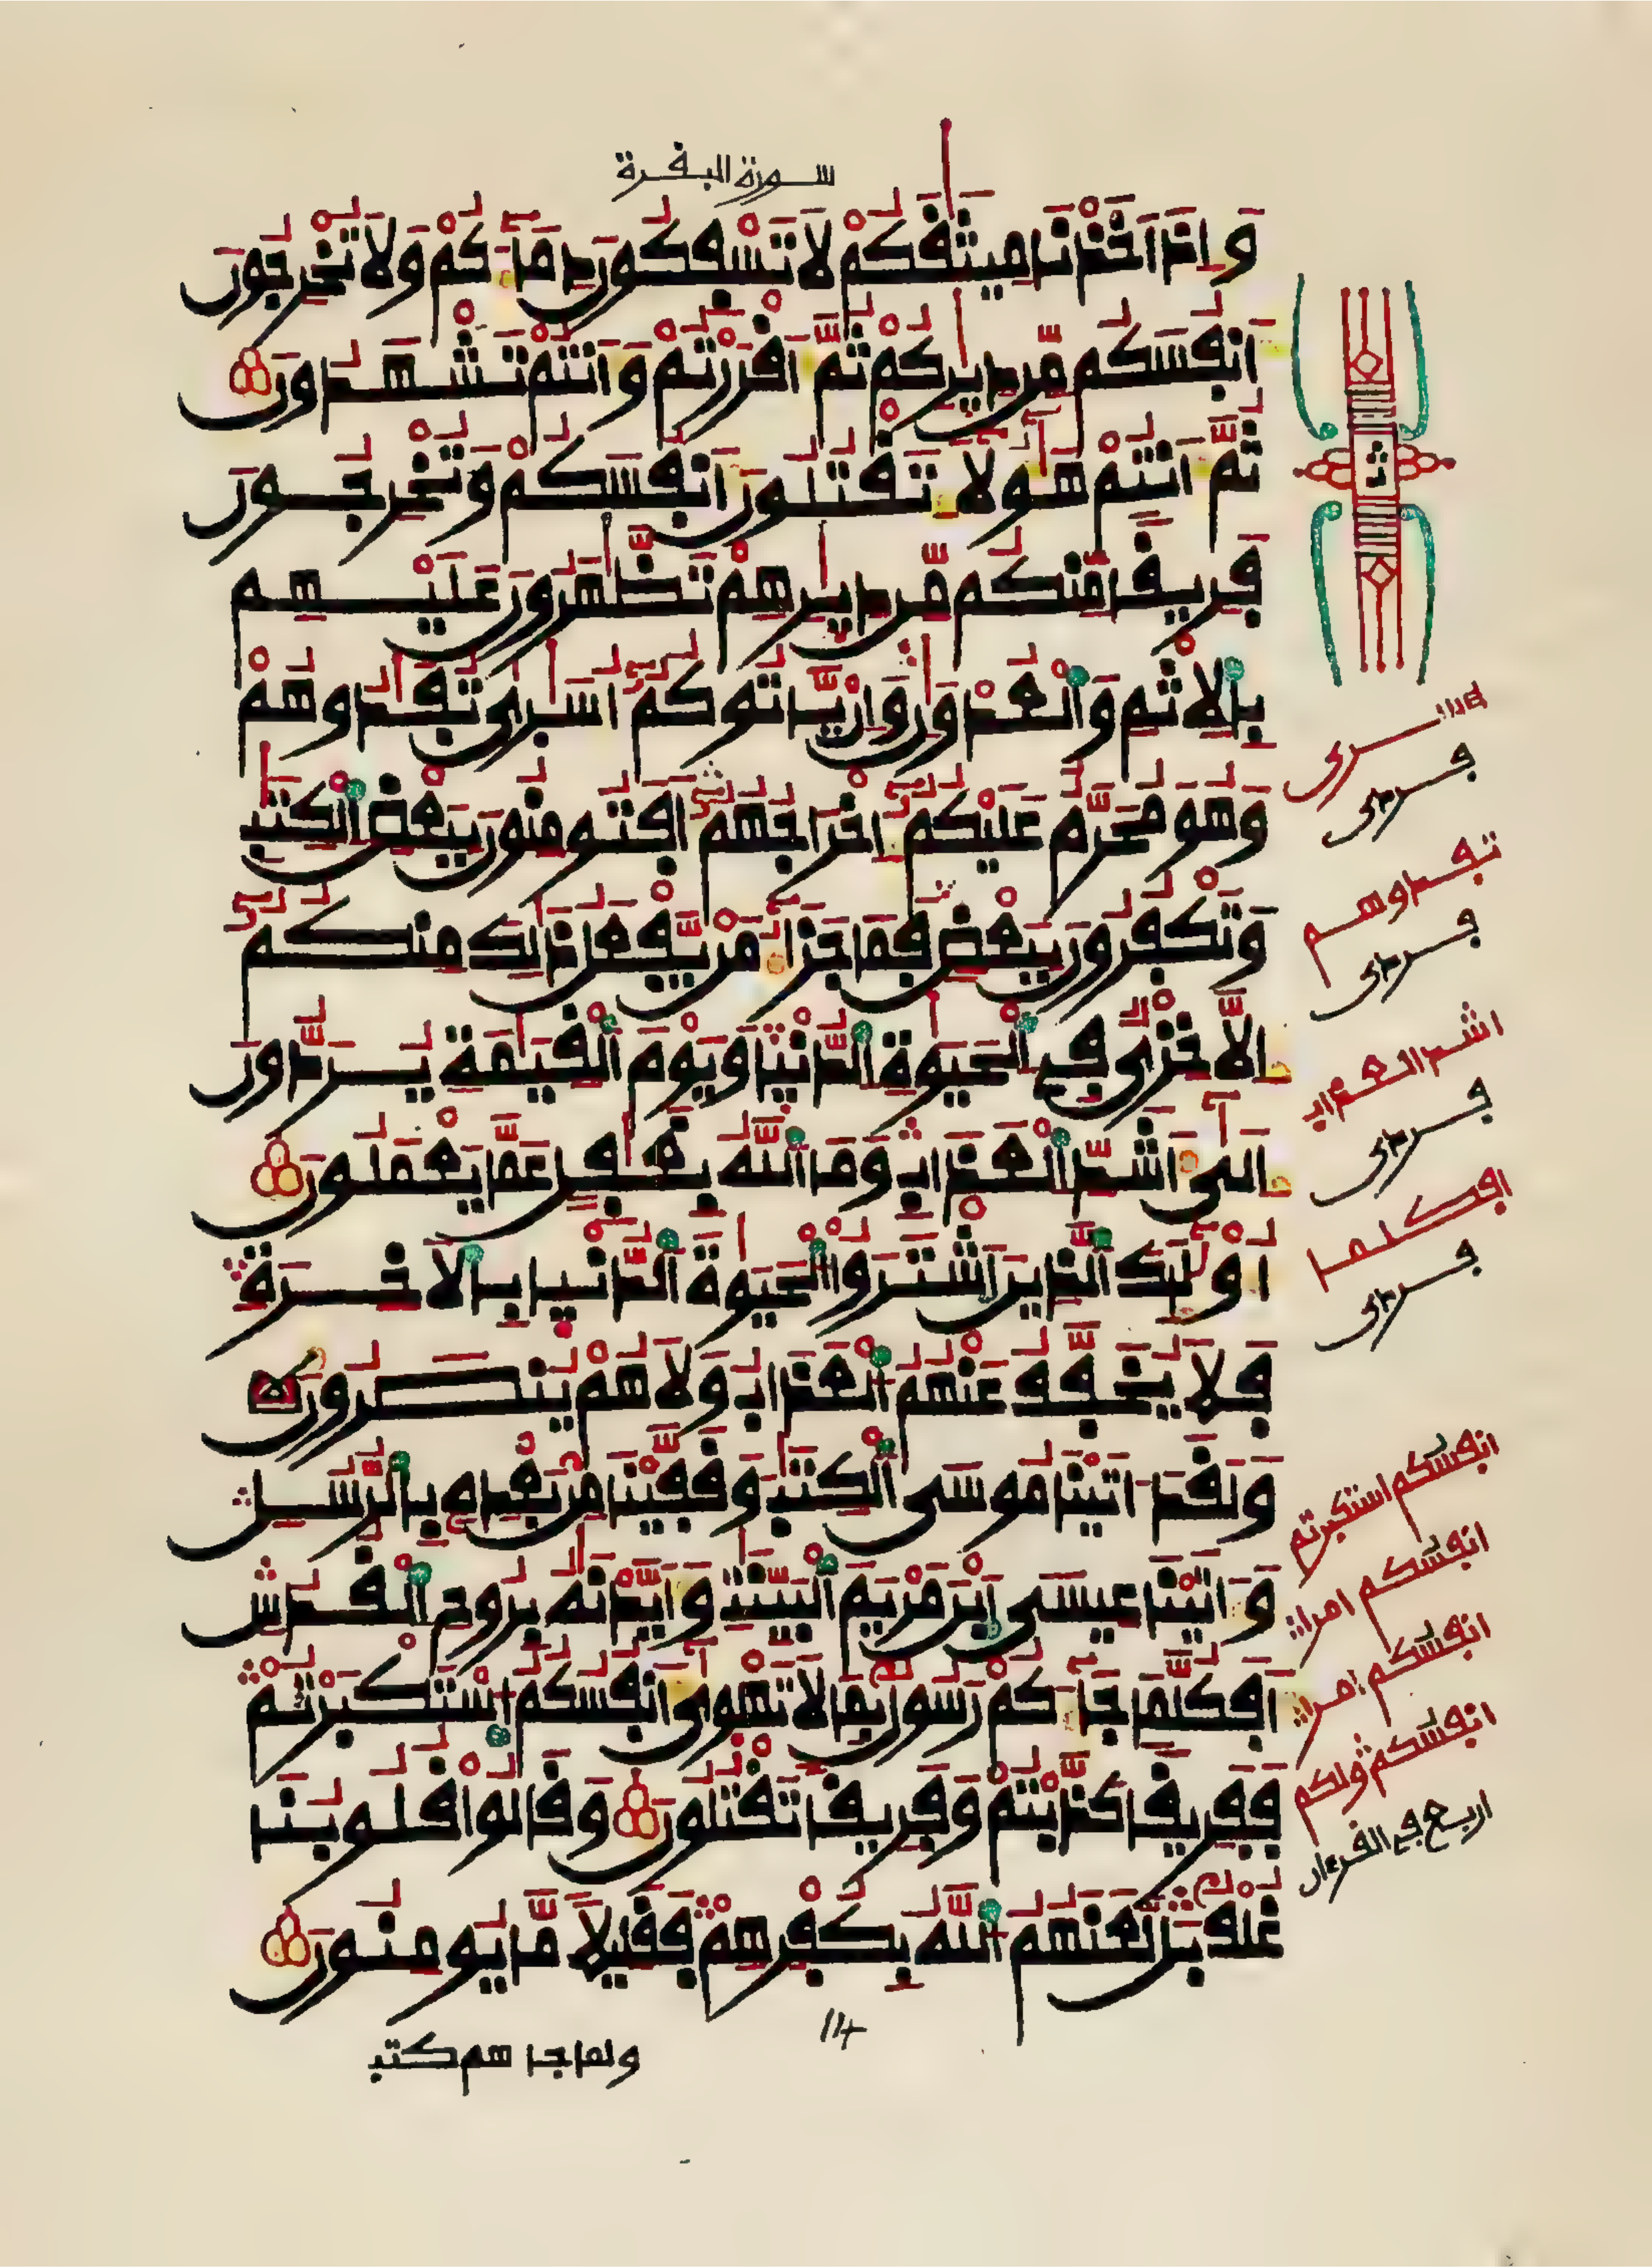 سورة البقرة
وَإِذَ اَخَذْنَا مِيثَٰقَكُمْ لَا تَسْفِكُونَ دِمَآءَكُمْ وَلَا تُخْرِجُونَ
أَنفُسَكُم مِّن دِيَٰرِكُمْ ثُمَّ أَقْرَرْتُمْ وَأَنتُمْ تَشْهَدُونَ
ثُمَّ أَنتُمْ هَٰٓؤُلَآءِ تَقْتُلُونَ أَنفُسَكُمْ وَتُخْرِجُونَ
فَرِيقًا مِّنكُم مِّن دِيَٰرِهِمْ تَظَّٰهَرُونَ عَلَيْهِم
بِالِاثْمِ وَالْعُدْوَٰنِ وَإِنْ يَّاتُوكُمُۥٓ أُسَٰرَىٰ تُفَٰدُوهُمْ
وَهُوَ مُحَرَّمٌ عَلَيْكُمُۥٓ إِخْرَاجُهُمُۥٓ أَفَتُومِنُونَ بِبَعْضِ الْكِتَٰبِ
وَتَكْفُرُونَ بِبَعْضٍ فَمَا جَزَآءُ مَنْ يَّفْعَلُ ذَٰلِكَ مِنكُمُۥٓ
إِلَّا خِزْىٌ فِى الْحَيَوٰةِ الدُّنْيَا وَيَوْمَ الْقِيَٰمَةِ يُرَدُّونَ
إِلَىٰٓ أَشَدِّ الْعَذَابِ وَمَا اللَّهُ بِغَٰفِلٍ عَمَّا يَعْمَلُونَ
أُوْلَٰٓئِكَ الَّذِينَ اَشْتَرَوُاْ الْحَيَوٰةَ الدُّنْيَا بِالَاخِرَةِ
فَلَا يُخَفَّفُ عَنْهُمُ الْعَذَابُ وَلَا هُمْ يُنصَرُونَ
وَلَقَدَ اٰتَيْنَا مُوسَى الْكِتَٰبَ وَقَفَّيْنَا مِنۢ بَعْدِهِۦ بِالرُّسُلِ
وَءَاتَيْنَا عِيسَى اَبْنَ مَرْيَمَ الْبَيِّنَٰتِ وَأَيَّدْنَٰهُ بِرُوحِ الْقُدُسِ
أَفَكُلَّمَا جَآءَكُمْ رَسُولٌۢ بِمَا لَا تَهْوَىٰٓ أَنفُسُكُمُ اسْتَكْبَرْتُمْ
فَفَرِيقًا كَذَّبْتُمْ وَفَرِيقًا تَقْتُلُونَ وَقَالُواْ قُلُوبُنَا
غُلْفٌۢ بَل لَّعَنَهُمُ اللَّهُ بِكُفْرِهِمْ فَقَلِيلًا مَّا يُومِنُونَ
14
ولما جا هم كتب
ثمن
اسرى
فردى
تفدوهم
فردى
اشد العذاب
فردى
افكلما
فردى
انفسكم استكبرتم
انفسكم امرا
انفسكم امرا
انفسكم ولكم
اربع في القرءان